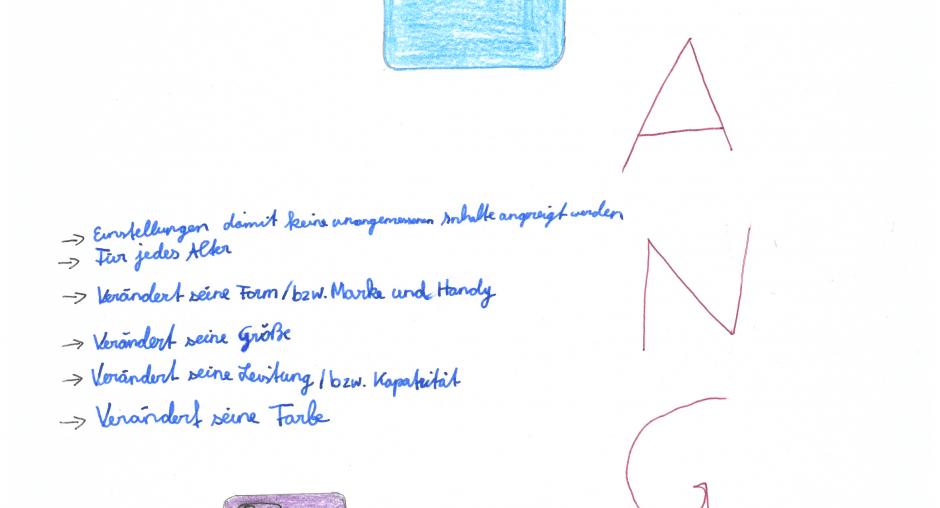 A
→ Einstellungen damit keine unangemessenen Inhalte angezeigt werden
→ Für jedes Alter
N
→ Verändert seine Form/bzw. Marke und Handy
→ Verändert seine Größe
→ Verändert seine Leistung / bzw. Kapatzität
→ Verändert seine Farbe
G